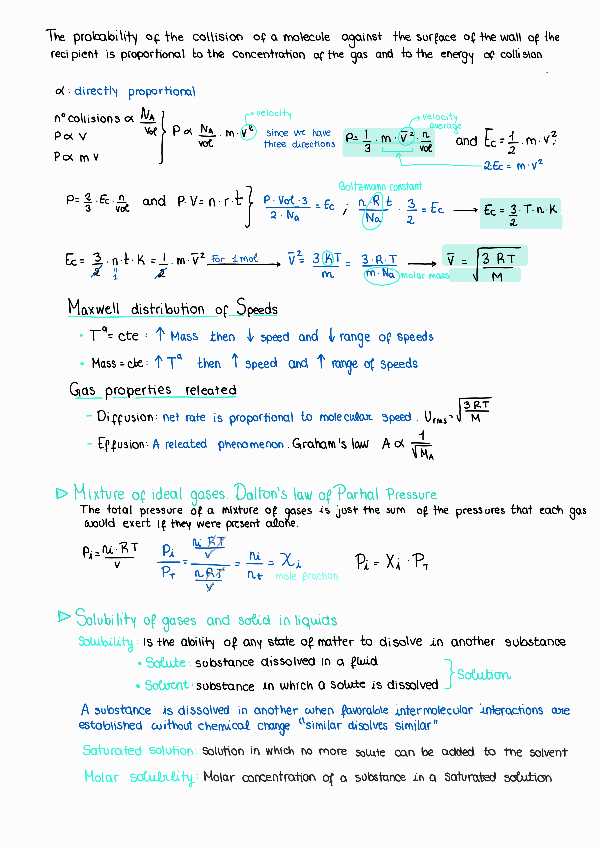 The probability of the collision of a molecule against the surface of the wall of the
recipient is proportional to the concentration of the gas and to the energy of collision
α: directly proportional
nº collisions ∝ N_A/Vol
P ∝ V
P ∝ m V
P ∝ N_A/vol · m · v² → velocity
since we have three directions
P = 1/3 · m · V̄² · n/vol → velocity average
and Ec = 1/2 · m · v²
2Ec = m · v²
P = 2/3 · Ec · n/vol and P·V = n·r·t
P · Vol · 3 / 2 · Na = Ec ; n R t / Na · 3/2 = Ec → Ec = 3/2 · T · n · K
Boltzmann constant
Ec = 3/2 · n · t · K = 1/2 · m · V̄² for 1 mol → V̄² = 3 R T / m = 3 · R · T / m · Na → V̄ = √(3 RT / M)
1
molar mass
Maxwell distribution of Speeds
· Tª = cte : ↑ Mass then ↓ speed and ↓ range of speeds
· Mass = cte: ↑ Tª then ↑ speed and ↑ range of speeds
Gas properties releated
- Diffusion: net rate is proportional to molecular speed. Urms = √(3RT / M)
- Effusion: A releated phenomenon. Graham's law A ∝ 1/√M_A
▷ Mixture of ideal gases. Dalton's law of Partial Pressure
The total pressure of a mixture of gases is just the sum of the pressures that each gas
would exert if they were present alone.
Pi = ni · RT / V
Pi / PT = (ni RT / V) / (n RT / V) = ni / nt = Xi
mole fraction
Pi = Xi · PT
▷ Solubility of gases and solid in liquids
Solubility: Is the ability of any state of matter to disolve in another substance
• Solute: substance dissolved in a fluid
• Solvent: substance in which a solute is dissolved
Solution
A substance is dissolved in another when favorable intermolecular interactions are
established without chemical change "similar disolves similar"
Saturated solution: Solution in which no more solute can be added to the solvent
Molar solubility: Molar concentration of a substance in a saturated solution